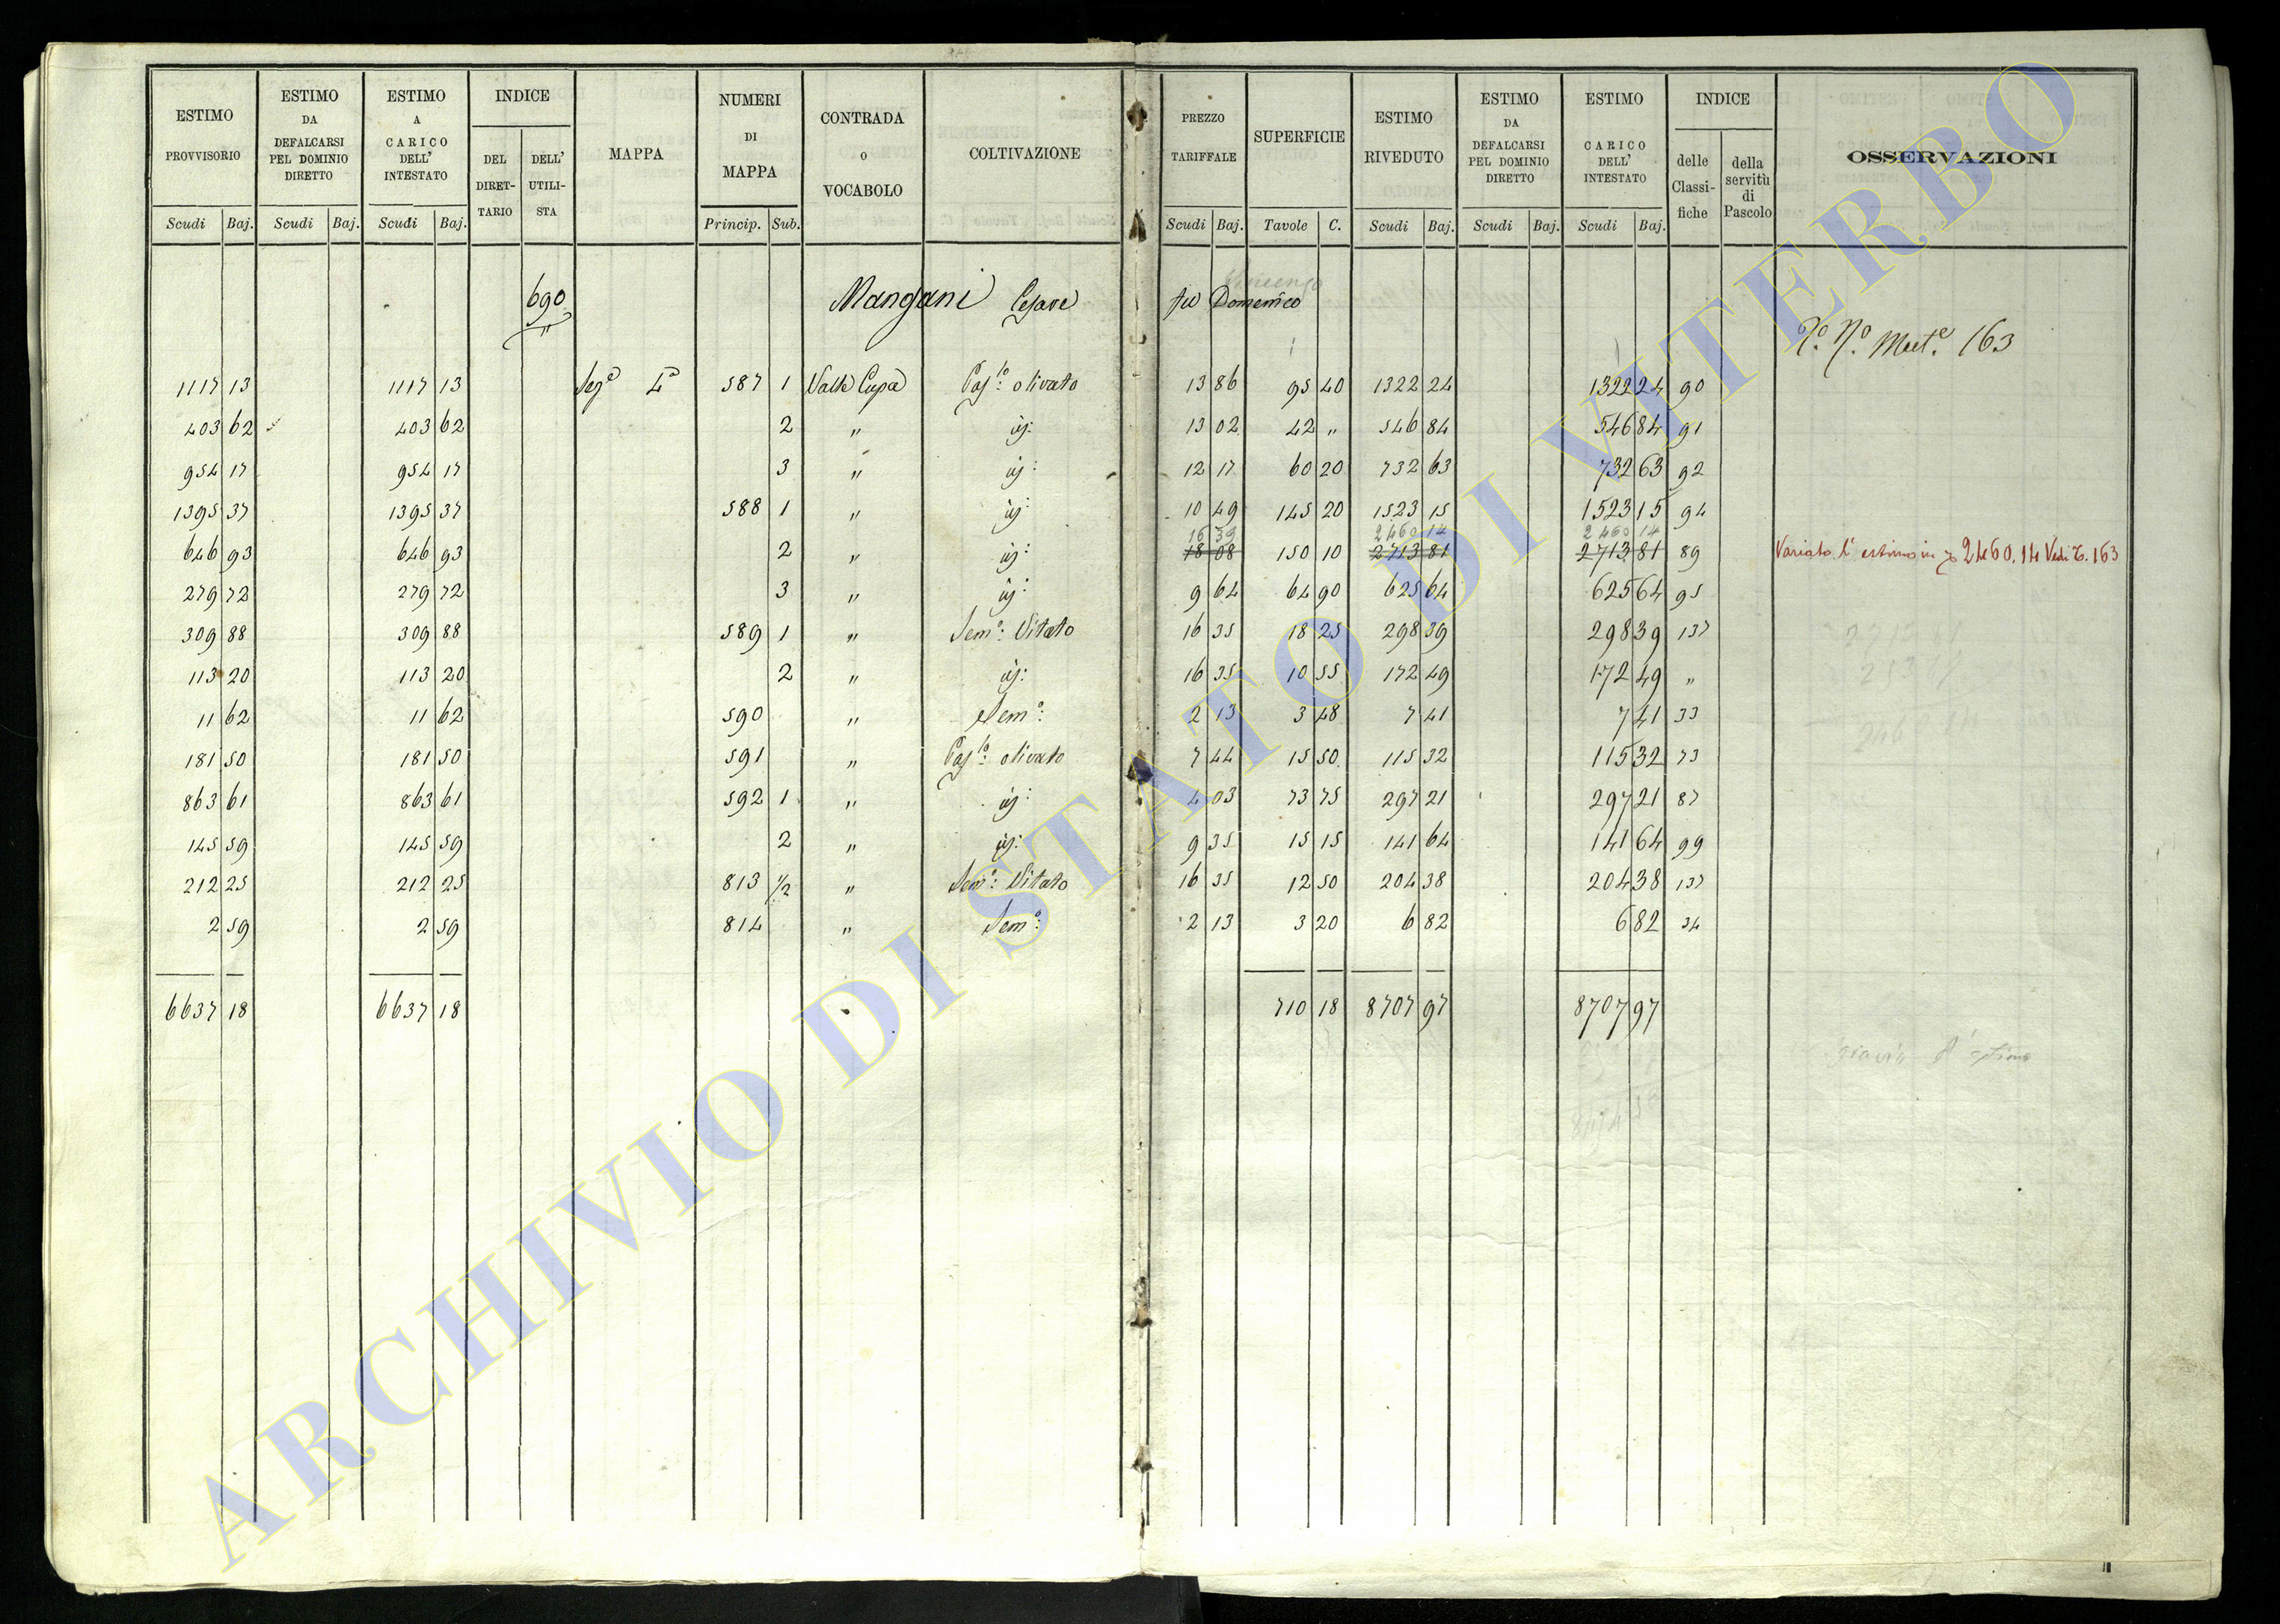 ESTIMO PROVVISORIO | ESTIMO DA DEFALCARSI PEL DOMINIO DIRETTO | ESTIMO A CARICO DELL' INTESTATO | INDICE DEL DIRETTARIO | DELL' UTILISTA | MAPPA | NUMERI DI MAPPA | CONTRADA O VOCABOLO | COLTIVAZIONE | PREZZO TARIFFALE | SUPERFICIE | ESTIMO RIVEDUTO | ESTIMO DA DEFALCARSI PEL DOMINIO DIRETTO | ESTIMO A CARICO DELL' INTESTATO | INDICE delle Classifiche | della servitù di Pascolo | OSSERVAZIONI
Scudi Baj. | Scudi Baj. | Scudi Baj. | Princip. Sub. | Scudi Baj. | Tavole C. | Scudi Baj. | Scudi Baj. | Scudi Baj.
Vincenzo
690 Mangani Cesare fu Domenico
" 
N.º Mut.e 163
1117 13 | 1117 13 | Sez.a 4.a | 587 1 | Valle Cupa | Pas.lo olivato | 13 86 | 95 40 | 1322 24 | 1322 24 | 90
403 62 | 403 62 | 2 | " | id: | 13 02 | 42 " | 546 84 | 546 84 | 91
954 17 | 954 17 | 3 | " | id: | 12 17 | 60 20 | 732 63 | 732 63 | 92
1395 37 | 1395 37 | 588 1 | " | id: | 10 49 | 145 20 | 1523 15 | 1523 15 | 94
16 39 | 2460 14 | 2460 14
646 93 | 646 93 | 2 | " | id: | 18 08 | 150 10 | 2713 81 | 2713 81 | 89 | Variato l'estimo in 2460.14 Vedi T. 163
279 72 | 279 72 | 3 | " | id: | 9 64 | 64 90 | 625 64 | 625 64 | 95
309 88 | 309 88 | 589 1 | " | Sem.o: Vitato | 16 35 | 18 25 | 298 39 | 298 39 | 137
113 20 | 113 20 | 2 | " | id: | 16 35 | 10 55 | 172 49 | 172 49 | "
11 62 | 11 62 | 590 | " | Sem.o: | 2 13 | 3 48 | 7 41 | 7 41 | 33
181 50 | 181 50 | 591 | " | Pas.lo: olivato | 7 44 | 15 50 | 115 32 | 115 32 | 73
863 61 | 863 61 | 592 1 | " | id: | 4 03 | 73 75 | 297 21 | 297 21 | 87
145 59 | 145 59 | 2 | " | id: | 9 35 | 15 15 | 141 64 | 141 64 | 99
212 25 | 212 25 | 813 1/2 | " | Sem.o: Vitato | 16 35 | 12 50 | 204 38 | 204 38 | 137
2 59 | 2 59 | 814 | " | Sem.o: | 2 13 | 3 20 | 6 82 | 6 82 | 34
6637 18 | 6637 18 | 710 18 | 8707 97 | 8707 97
ARCHIVIO DI STATO DI VITERBO